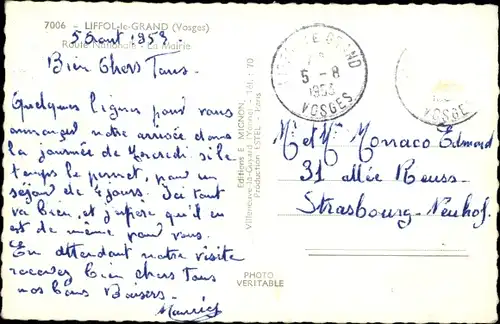 7006 - LIFFOL-le-GRAND (Vosges)
5 Aout 1953.
Route Nationale - La Mairie
Bien Chers Tous.
Quelques lignes pour vous
annonçer notre arrivée dans
la journée de Mercredi si le
temps le permet, pour un
séjour de 4 jours. Ici tout
va bien, et j'espère qu'il en
est de même pour vous.
En attendant notre visite
recevez bien chers Tous
nos bons Baisers.
Editions E. MIGNON,
Villeneuve-la-Guyard (Yonne) Tél. : 70
Production ESTEL - Paris
PHOTO
VERITABLE
LE GRAND
5 - 8
1953
VOSGES
VOSGES
Mr et Mme Monaco Edmond
31 allée Reuss.
Strasbourg-Neuhof.